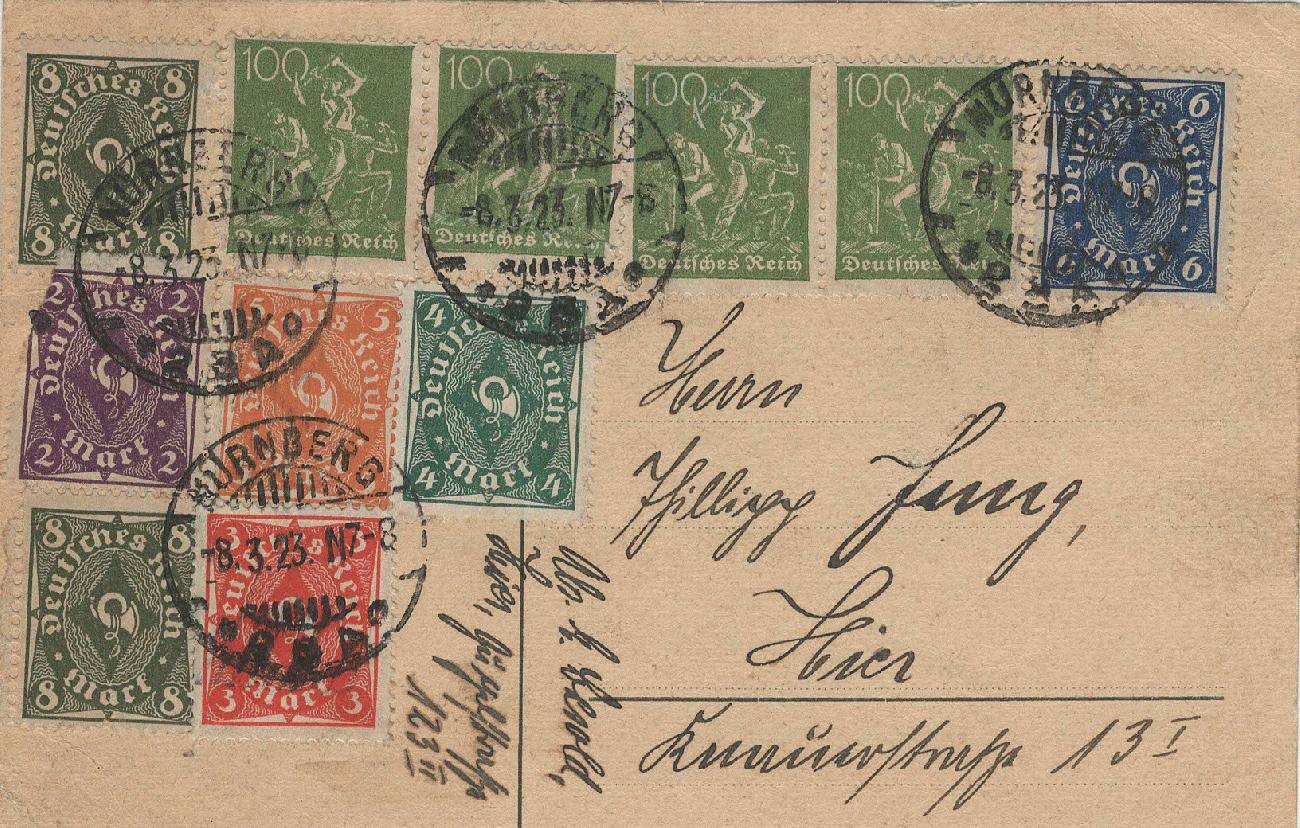 8 8
Deutsches Reich
8 Mark 8
100
Deutsches Reich
100
Deutsches Reich
100
Deutsches Reich
100
Deutsches Reich
6 6
Deutsches Reich
6 Mark 6
NÜRNBERG
-8.3.23. N7-8
NÜRNBERG
-8.3.23. N7-8
NÜRNBERG
-8.3.23.
2 2
Deutsches Reich
2 Mark 2
5 5
Deutsches Reich
4 4
Deutsches Reich
4 Mark 4
NÜRNBERG
-8.3.23. N7-8
8 8
Deutsches Reich
8 Mark 8
3 3
Deutsches Reich
3 Mark 3
Herrn
Phillipp Jung,
Hier
Knauerstraße 13 I
Hier,
123 II